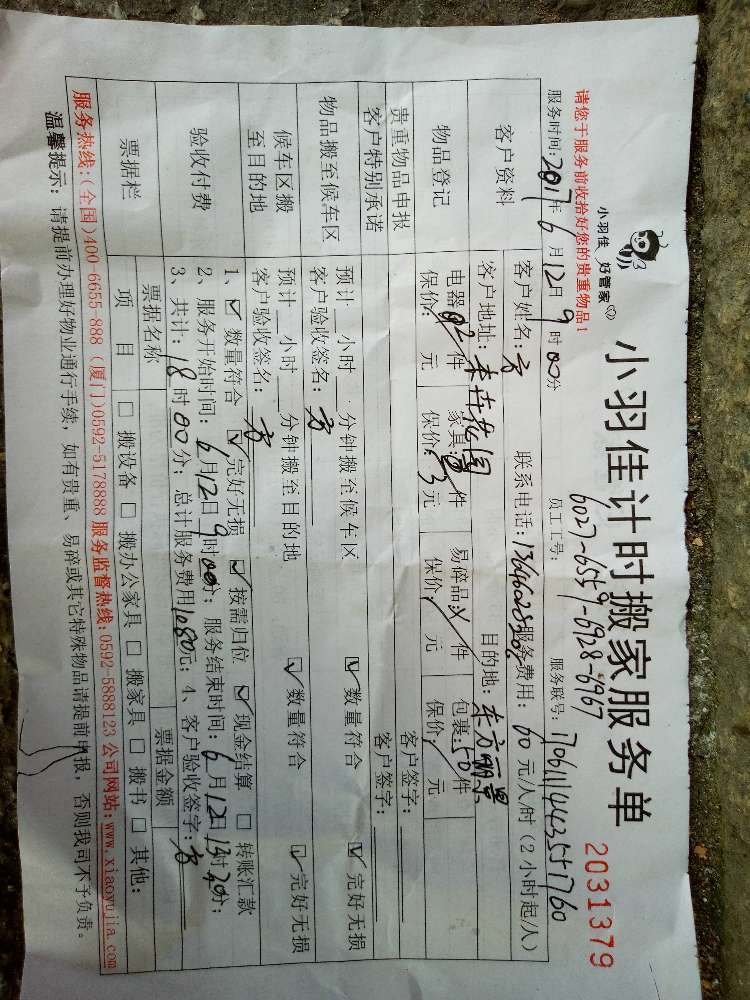 小羽佳 好管家
小羽佳计时搬家服务单
2031379
请您于服务前收拾好您的贵重物品!
员工工号:
6027-6559-6928-6967
服务时间:2017年6月12日9时00分
服务联号:
客户资料
客户姓名:方 联系电话: 服务费用:60元/人/时(2小时起/人)
客户地址: 花园 目的地:东方
物品登记
电器 件 家具 件 易碎品: 件 包裹:50件
保价: 元 保价: 元 保价 元 保价 元
贵重物品申报 客户签字:
客户特别承诺 客户签字:
物品搬至候车区
预计 小时 分钟搬至候车区 ☑数量符合 ☑完好无损
客户验收签名:方
候车区搬至目的地
预计 小时 分钟搬至目的地 ☑数量符合 ☑完好无损
客户验收签名:方
验收付费
1、☑数量符合 ☑完好无损 ☑按需归位 ☑现金结算 □转账汇款
2、服务开始时间:6月12日9时00分;服务结束时间:6月12日13时 分;
3、共计:18时00分;总计服务费用1080元;4、客户验收签字:方
票据栏
票据名称 票据金额
项目 □搬设备 □搬办公家具 □搬家具 □搬书 □其他:
服务热线:(全国)400-6655-888 (厦门)0592-5178888 服务监督热线:0592-5888123 公司网站:www.xiaoyujia.com
温馨提示:请提前办理好物业通行手续,如有贵重、易碎或其它特殊物品请提前申报,否则我司不予负责。